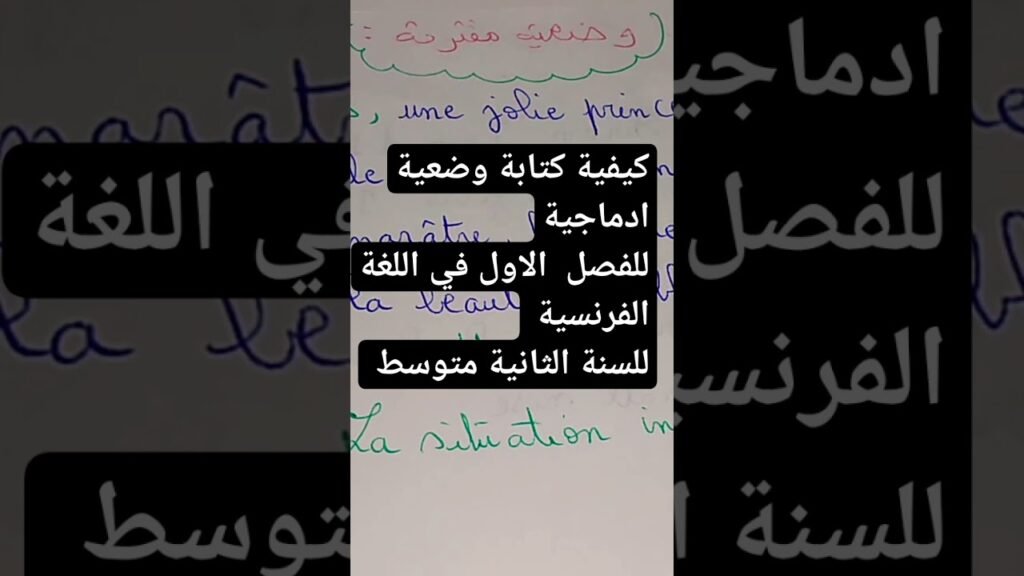 وضعية مقترحة :
, une jolie princ
كيفية كتابة وضعية
ادماجية
marâtre,
للفصل الاول في اللغة
la beau
الفرنسية
للسنة الثانية متوسط
La situation in